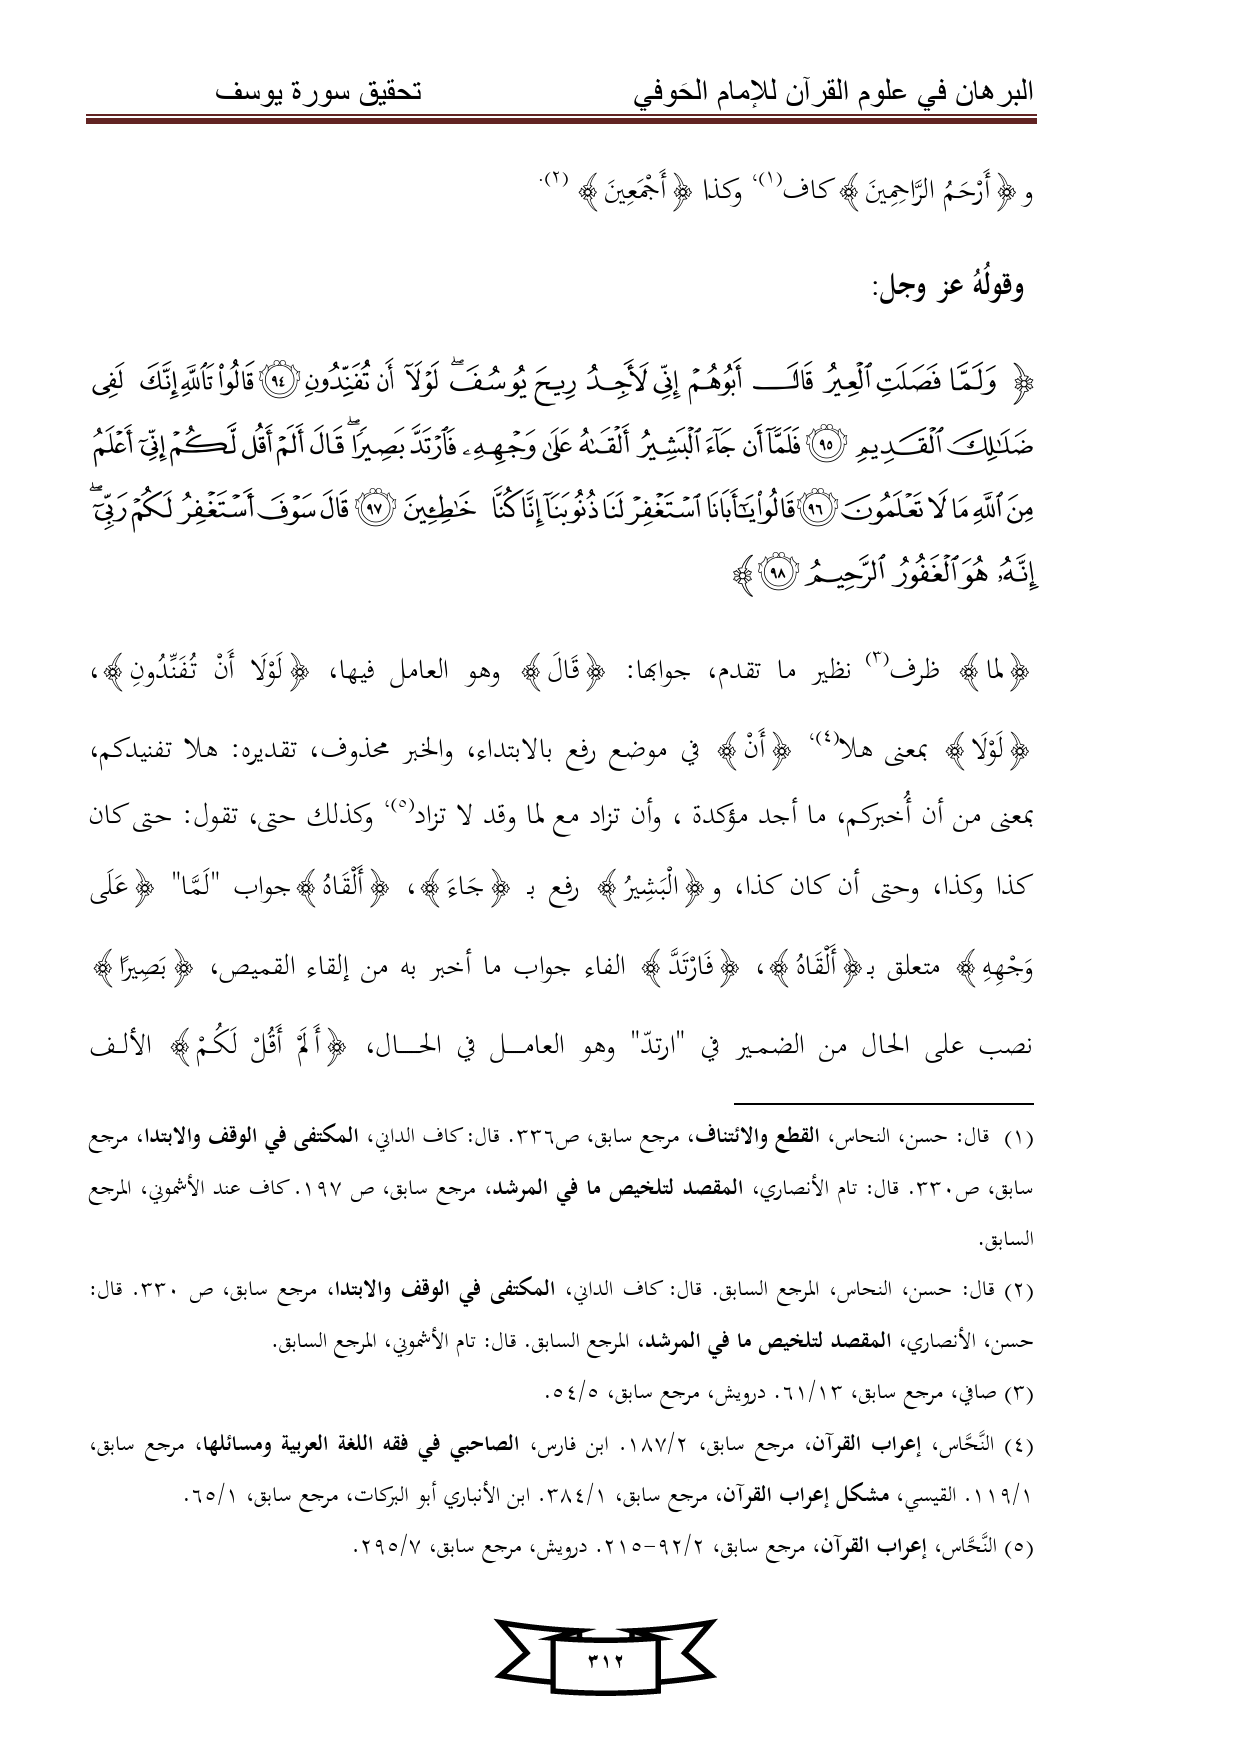 البرهان في علوم القرآن للإمام الحَوفي تحقيق سورة يوسف
و ﴿ أَرْحَمُ الرَّاحِمِينَ ﴾ كاف(١)، وكذا ﴿ أَجْمَعِينَ ﴾ (٢).
وقولُهُ عز وجل:
﴿ وَلَمَّا فَصَلَتِ ٱلْعِيرُ قَالَ أَبُوهُمْ إِنِّى لَأَجِدُ رِيحَ يُوسُفَ ۖ لَوْلَآ أَن تُفَنِّدُونِ ٩٤ قَالُوا۟ تَٱللَّهِ إِنَّكَ لَفِى
ضَلَٰلِكَ ٱلْقَدِيمِ ٩٥ فَلَمَّآ أَن جَآءَ ٱلْبَشِيرُ أَلْقَىٰهُ عَلَىٰ وَجْهِهِۦ فَٱرْتَدَّ بَصِيرًا ۖ قَالَ أَلَمْ أَقُل لَّكُمْ إِنِّىٓ أَعْلَمُ
مِنَ ٱللَّهِ مَا لَا تَعْلَمُونَ ٩٦ قَالُوا۟ يَٰٓأَبَانَا ٱسْتَغْفِرْ لَنَا ذُنُوبَنَآ إِنَّا كُنَّا خَٰطِـِٔينَ ٩٧ قَالَ سَوْفَ أَسْتَغْفِرُ لَكُمْ رَبِّىٓ ۖ
إِنَّهُۥ هُوَ ٱلْغَفُورُ ٱلرَّحِيمُ ٩٨ ﴾
﴿ لما ﴾ ظرف(٣) نظير ما تقدم، جوابها: ﴿ قَالَ ﴾ وهو العامل فيها، ﴿ لَوْلَا أَنْ تُفَنِّدُونِ ﴾،
﴿ لَوْلَا ﴾ بمعنى هلا(٤)، ﴿ أَنْ ﴾ في موضع رفع بالابتداء، والخبر محذوف، تقديره: هلا تفنيدكم،
بمعنى من أن أُخبركم، ما أجد مؤكدة ، وأن تزاد مع لما وقد لا تزاد(٥)، وكذلك حتى، تقول: حتى كان
كذا وكذا، وحتى أن كان كذا، و﴿ الْبَشِيرُ ﴾ رفع بـ ﴿ جَاءَ ﴾، ﴿ أَلْقَاهُ ﴾جواب "لَمَّا" ﴿ عَلَى
وَجْهِهِ ﴾ متعلق بـ﴿ أَلْقَاهُ ﴾، ﴿ فَارْتَدَّ ﴾ الفاء جواب ما أخبر به من إلقاء القميص، ﴿ بَصِيرًا ﴾
نصب على الحال من الضمير في "ارتدّ" وهو العامــل في الحــال، ﴿ أَلَمْ أَقُلْ لَكُمْ ﴾ الألف
(١) قال: حسن، النحاس، القطع والائتناف، مرجع سابق، ص٣٣٦. قال: كاف الداني، المكتفى في الوقف والابتدا، مرجع
سابق، ص٣٣٠. قال: تام الأنصاري، المقصد لتلخيص ما في المرشد، مرجع سابق، ص ١٩٧. كاف عند الأشموني، المرجع
السابق.
(٢) قال: حسن، النحاس، المرجع السابق. قال: كاف الداني، المكتفى في الوقف والابتدا، مرجع سابق، ص ٣٣٠. قال:
حسن، الأنصاري، المقصد لتلخيص ما في المرشد، المرجع السابق. قال: تام الأشموني، المرجع السابق.
(٣) صافي، مرجع سابق، ٦١/١٣. درويش، مرجع سابق، ٥٤/٥.
(٤) النَّحَّاس، إعراب القرآن، مرجع سابق، ١٨٧/٢. ابن فارس، الصاحبي في فقه اللغة العربية ومسائلها، مرجع سابق،
١١٩/١. القيسي، مشكل إعراب القرآن، مرجع سابق، ٣٨٤/١. ابن الأنباري أبو البركات، مرجع سابق، ٦٥/١.
(٥) النَّحَّاس، إعراب القرآن، مرجع سابق، ٩٢/٢-٢١٥. درويش، مرجع سابق، ٢٩٥/٧.
٣١٢